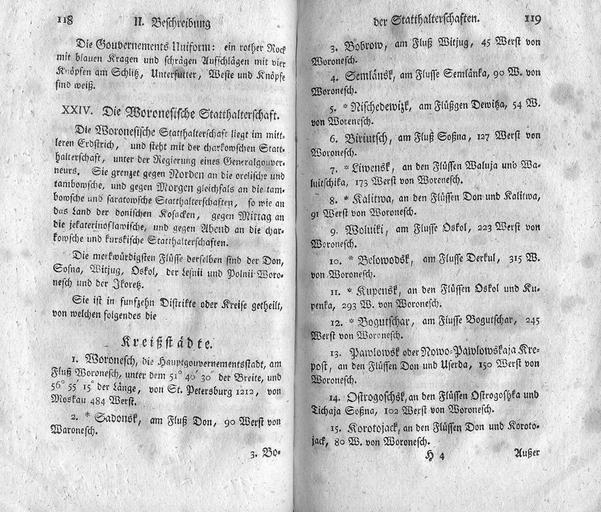 118 II. Beschreibung
Die Gouvernements Uniform: ein rother Rock
mit blauen Kragen und schrägen Aufschlägen mit vier
Knöpfen am Schlitz, Unterfutter, Weste und Knöpfe
sind weiß.
XXIV. Die Woronesische Statthalterschaft.
Die Woronesische Statthalterschaft liegt im mitt-
leren Erdstrich, und steht mit der charkowschen Statt-
halterschaft, unter der Regierung eines Generalgouver-
neurs. Sie grenzet gegen Norden an die orelische und
tambowsche, und gegen Morgen gleichfals an die tam-
bowsche und saratowsche Statthalterschaften, so wie an
das Land der donischen Kosacken, gegen Mittag an
die jekaterinoslawische, und gegen Abend an die char-
kowsche und kurskische Statthalterschaften.
Die merkwürdigsten Flüsse derselben sind der Don,
Sosna, Witjug, Oskol, der Lesnii und Polnii Woro-
nesch und der Ikorez.
Sie ist in funfzehn Distrikte oder Kreise getheilt,
von welchen folgendes die
Kreißstädte.
1. Woronesch, die Hauptgouvernementsstadt, am
Fluß Woronesch, unter dem 51° 40′ 30″ der Breite, und
56° 55′ 15″ der Länge, von St. Petersburg 1212, von
Moskau 484 Werst.
2. * Sadonsk, am Fluß Don, 90 Werst von
Waronesch.
3. Bo-
der Statthalterschaften. 119
3. Bobrow, am Fluß Witjug, 45 Werst von
Woronesch.
4. Semlänsk, am Flusse Semlänka, 90 W. von
Woronesch.
5. * Nischedewizk, am Flüßgen Dewitza, 54 W.
von Woronesch.
6. Biriutsch, am Fluß Soßna, 127 Werst von
Woronesch.
7. * Liwensk, an den Flüssen Waluja und Wa-
luitschika, 173 Werst von Woronesch.
8. * Kalitwa, an den Flüssen Don und Kalitwa,
91 Werst von Woronesch.
9. Woluiki, am Flusse Oskol, 223 Werst von
Woronesch.
10. * Belowodsk, am Flusse Derkul, 315 W.
von Woronesch.
11. * Kupensk, an den Flüssen Oskol und Ku-
penka, 293 W. von Woronesch.
12. * Bogutschar, am Flusse Bogutschar, 245
Werst von Woronesch.
13. Pawlowsk oder Nowo-Pawlowskaja Kre-
post, an den Flüssen Don und Userda, 150 Werst von
Woronesch.
14. Ostrogoschsk, an den Flüssen Ostrogoschka und
Tichaja Soßna, 102 Werst von Woronesch.
15. Korotojack, an den Flüssen Don und Koroto-
jack, 80 W. von Woronesch.
H 4 Außer